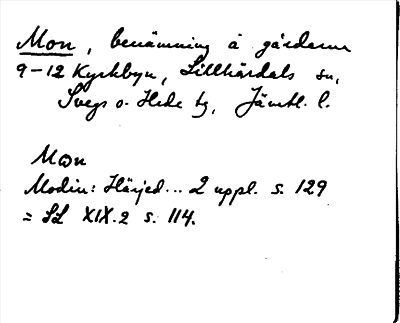 Mon, benämning å gårdarna
9-12 Kyrkbyn, Lillhärdals sn,
Svegs o. Hede tg, Jämtl. l.
Mɷn
Modin: Härjed... 2 uppl. s. 129
= SL XIX.2 s. 114.